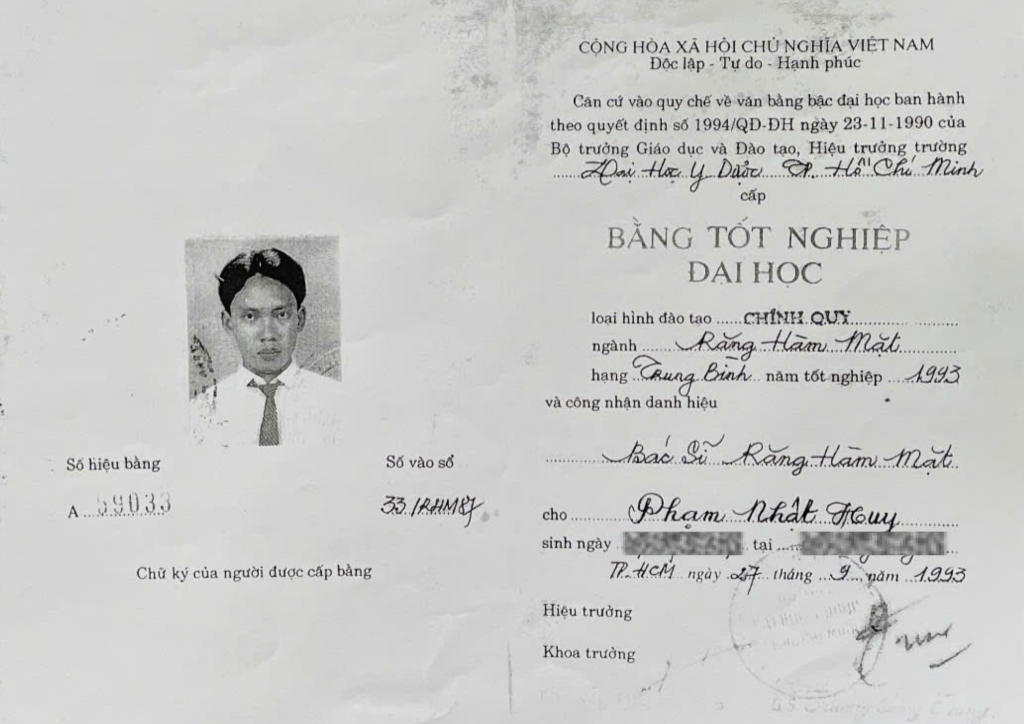 Số hiệu bằng
Số vào sổ
A ....59033
33/RHM87
Chữ ký của người được cấp bằng
CỘNG HÒA XÃ HỘI CHỦ NGHĨA VIỆT NAM
Độc lập - Tự do - Hạnh phúc
Căn cứ vào quy chế về văn bằng bậc đại học ban hành
theo quyết định số 1994/QD-ĐH ngày 23-11-1990 của
Bộ trưởng Giáo dục và Đào tạo, Hiệu trưởng trường
Đại Học Y Dược TP. Hồ Chí Minh
cấp
BẰNG TỐT NGHIỆP
ĐẠI HỌC
loại hình đào tạo CHÍNH QUY
ngành Răng Hàm Mặt
hạng Trung Bình năm tốt nghiệp 1993
và công nhận danh hiệu
Bác Sĩ Răng Hàm Mặt
cho Phạm Nhật Huy
sinh ngày tại
TP. HCM ngày 27 tháng 9 năm 1993
Hiệu trưởng
Khoa trưởng